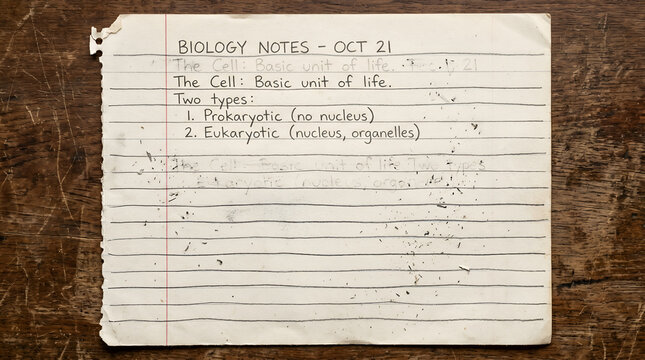 BIOLOGY NOTES – OCT 21
The Cell: Basic unit of life. 21
The Cell: Basic unit of life.
Two types:
1. Prokaryotic (no nucleus)
2. Eukaryotic (nucleus, organelles)
The Cell: Basic unit of life Two types
Eukaryotic (nucleus,